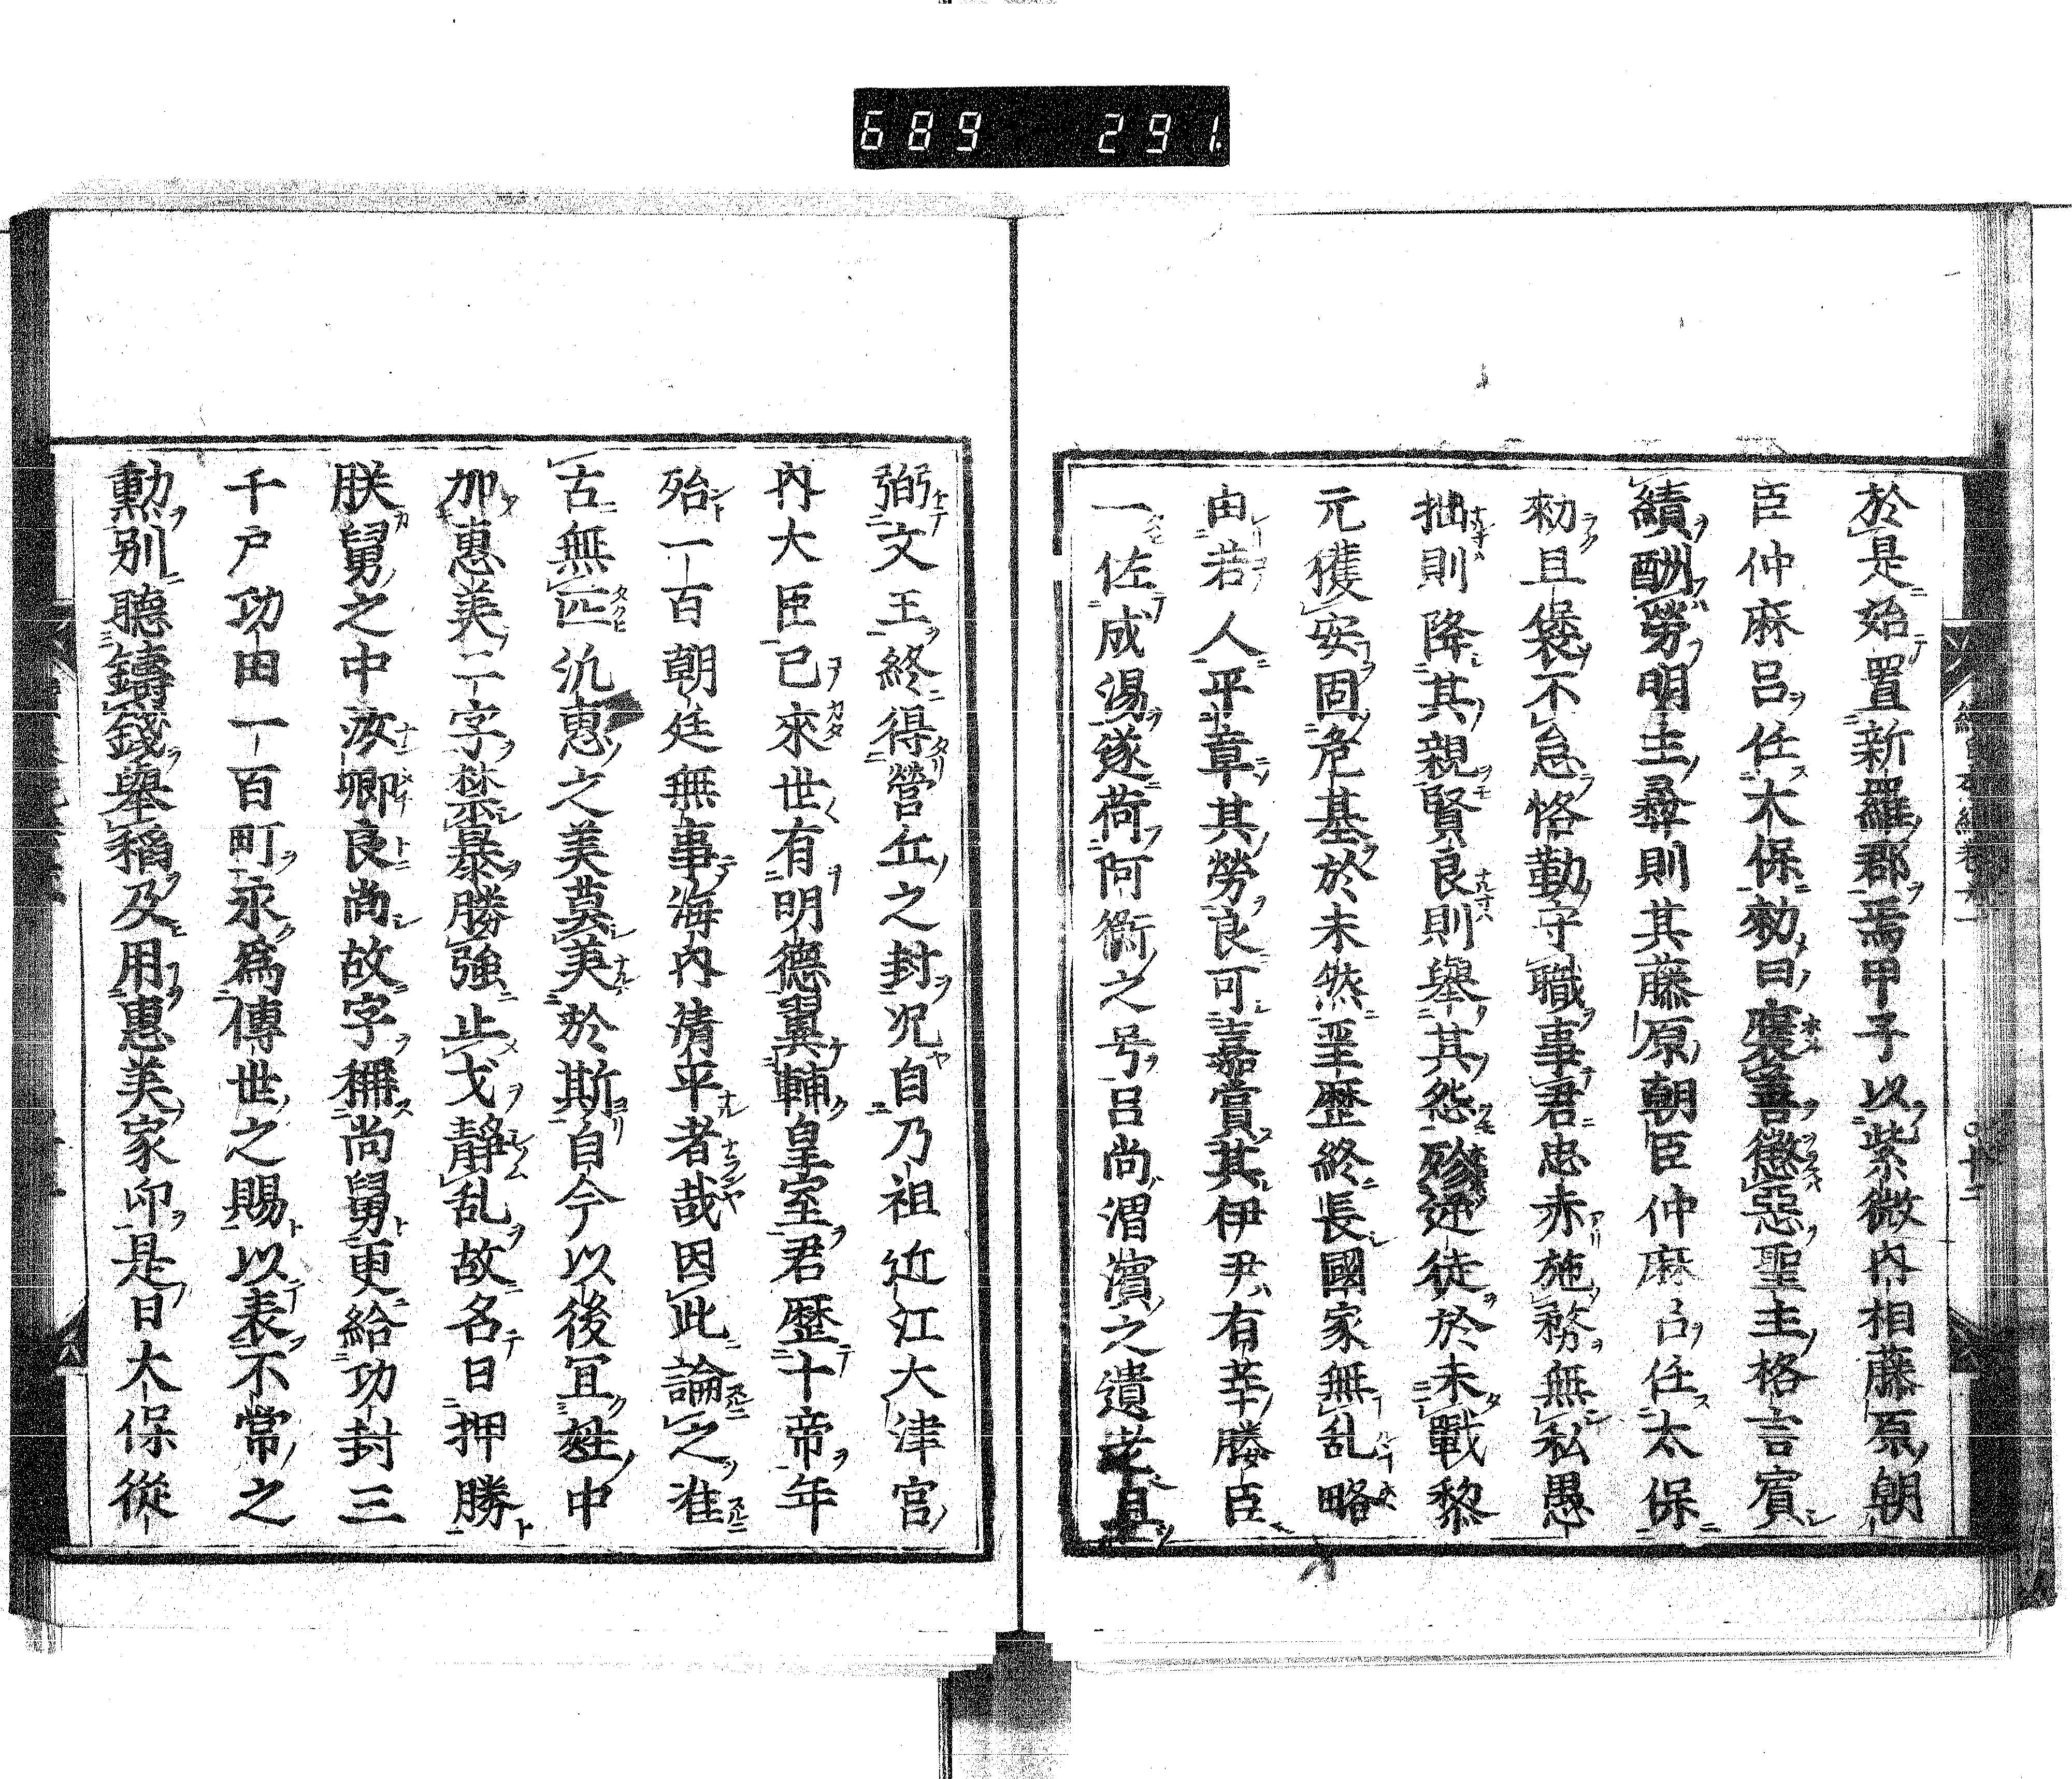 689 291
於是始置新羅郡焉甲子以紫微內相藤原朝
臣仲麻呂任太保勅曰褒善懲惡聖主格言賓
績酬勞明主彜則其藤原朝臣仲麻呂任太保
勅且袋不怠恪勤守職事君忠赤施務無私愚
拙則降其親賢良則舉其怨殄逆徒於未戰黎
元獲安固危基於未然聖歷終長國家無乱略
由若人平章其勞良可嘉賞其伊尹有莘媵臣
一佐成湯遂荷阿衡之号呂尚渭濱之遺老且
弼文王終得營丘之封况自乃祖近江大津宮
內大臣已來世有明德翼輔皇室君歷十帝年
殆一百朝廷無事海內清平者哉因此論之准
古無匹汎惠之美莫美於斯自今以後宜姓中
加惠美二字禁暴勝強止戈静乱故名曰押勝
朕舅之中汝卿良尚故字稱尚舅更給功封三
千戶功田一百町永爲傳世之賜以表不常之
勳別聽鑄錢舉稻及用惠美家印是日太保從